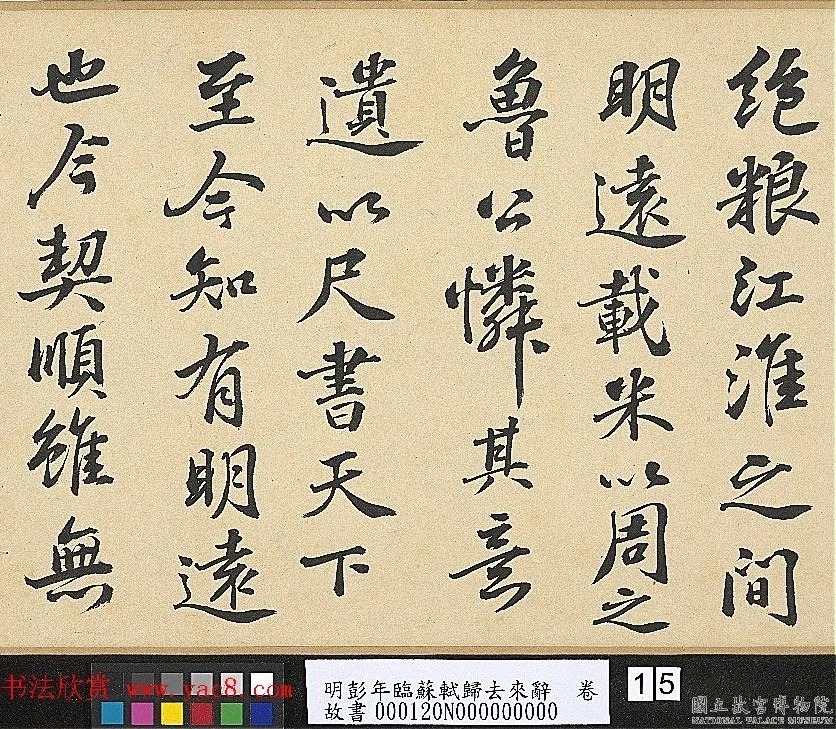 絶粮江淮之間
明遠載米以周之
魯公憐其意
遺以尺書天下
至今知有明遠
也今契順雖無
书法欣赏 www.yac8.com
明彭年臨蘇軾歸去來辭 卷
故書000120N000000000
15
國立故宮博物院
NATIONAL PALACE MUSEUM